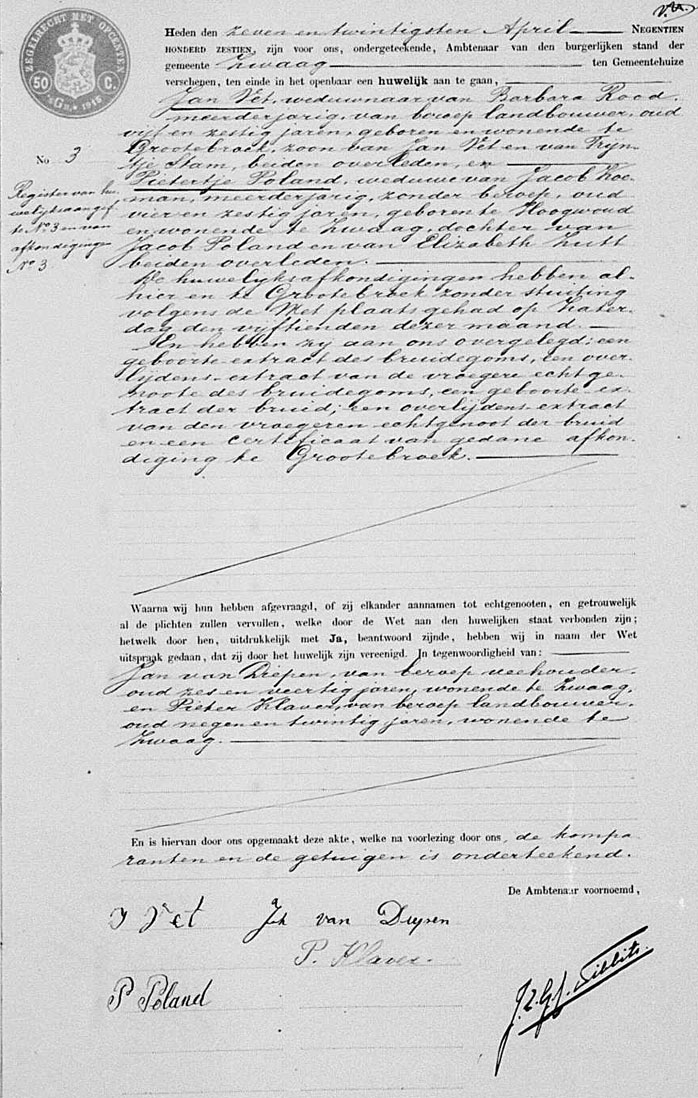 ZEGELRECHT MET OPCENTEN
50 C.
Heden den zeven en twintigsten April NEGENTIEN
HONDERD ZESTIEN, zijn voor ons, ondergeteekende, Ambtenaar van den burgerlijken stand der
gemeente Zwaag ten Gemeentehuize
verschenen, ten einde in het openbaar een huwelijk aan te gaan,
Jan Vet, weduwnaar van Barbara Rood,
meerderjarig, van beroep landbouwer, oud
vijf en zestig jaren, geboren en wonende te
No 3
Grootebroek, zoon van Jan Vet en van Tryn-
tje Stam, beiden overleden, en
Pietertje Poland, weduwe van Jacob Koe-
man, meerderjarig, zonder beroep, oud
vier en zestig jaren, geboren te Hoogwoud
en wonende te Zwaag, dochter van
Jacob Poland en van Elizabeth Nutt
beiden overleden.
Register van hu-
welijksaangif-
te No 3 en van
afkondigingen
No 3
De huwelijksafkondigingen hebben al-
hier en te Grootebroek zonder stuiting
volgens de Wet plaats gehad op Zater-
dag den vijftienden dezer maand.
En hebben zij aan ons overgelegd: een
geboorte-extract des bruidegoms, een over-
lijdens-extract van de vroegere echtge-
noote des bruidegoms, een geboorte-ex-
tract der bruid; een overlijdens-extract
van den vroegeren echtgenoot der bruid
en een certificaat van gedane afkon-
diging te Grootebroek.
Waarna wij hun hebben afgevraagd, of zij elkander aannamen tot echtgenooten, en getrouwelijk
al de plichten zullen vervullen, welke door de Wet aan den huwelijken staat verbonden zijn;
hetwelk door hen, uitdrukkelijk met Ja, beantwoord zijnde, hebben wij in naam der Wet
uitspraak gedaan, dat zij door het huwelijk zijn vereenigd. In tegenwoordigheid van:
Jan van Diepen, van beroep veehouder,
oud zes en veertig jaren, wonende te Zwaag,
en Pieter Klaver, van beroep landbouwer,
oud negen en twintig jaren, wonende te
Zwaag.
En is hiervan door ons opgemaakt deze akte, welke na voorlezing door ons, de kompa-
ranten en de getuigen is onderteekend.
De Ambtenaar voornoemd,
J Vet
Jn van Diepen
P. Klaver
P Poland